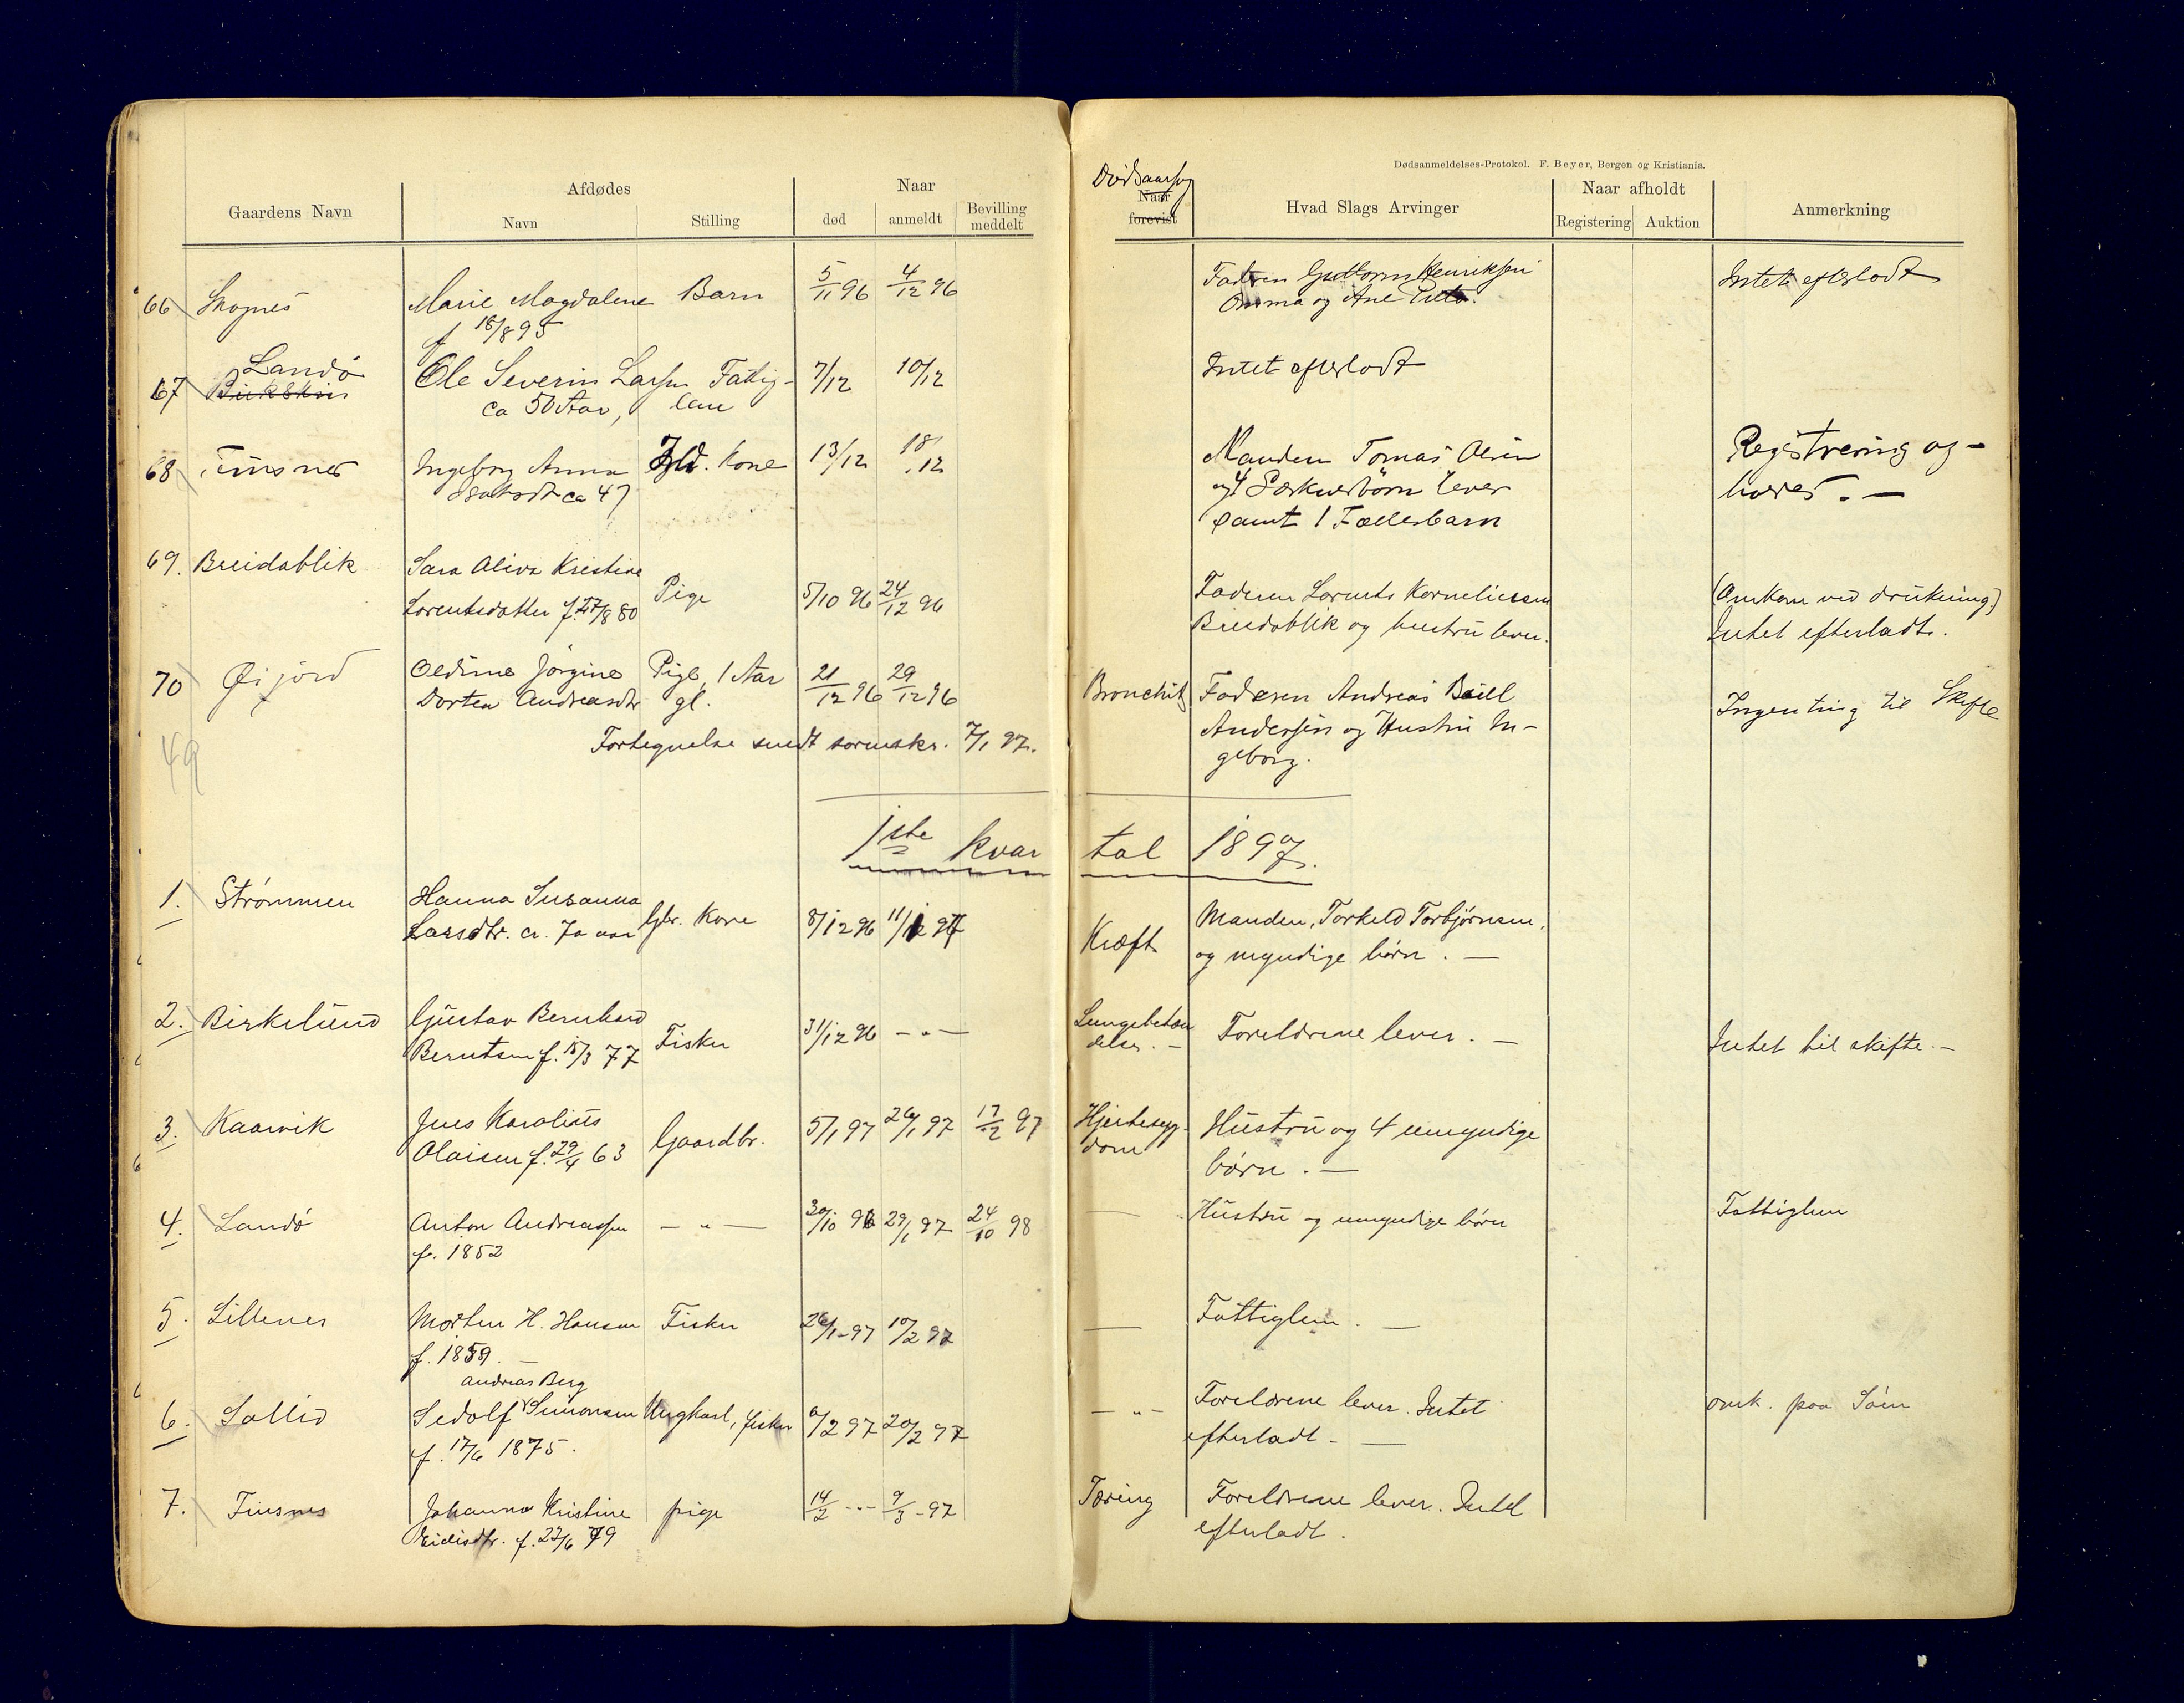 Dødsanmeldelses-Protokol. F. Beyer, Bergen og Kristiania.
Gaardens Navn
Afdødes
Navn
Stilling
Naar
død
anmeldt
Bevilling
meddelt
Dødsaarsag
Naar
forevist
Hvad Slags Arvinger
Naar afholdt
Registering
Auktion
Anmerkning
66 Skognes Marie Magdalene Barn 5/11 96 4/12 96 Faderen Guttorm Henriksen Intet efterladt
f 18/8 95 og Ane
67 Landø Ole Severin Larsen Fattig- 7/12 10/12 Intet efterladt
ca 50 Aar, lem
68 Finsnes Ingeborg Anna Kone 13/12 18/12 Manden Tomas Olsen Registrering og-
ca 47 og 4 Særkulsbørn lever hveres. —
samt 1 Fællesbarn
69. Breidablik Sara Oliva Kristine
Lorentsdatter f. 27/8 80 Pige 5/10 96 24/12 96 Faderen Lorents Korneliussen (Omkom ved drukning)
Breidablik og hustru lever. Intet efterladt.
70 Øijord Oldine Jørgine Pige, 1 Aar 21/12 96 29/12 96 Bronchit Faderen Andreas Ingenting til Skifte
Dortea Andreasdtr gl. Andersen og Hustru In-
Fortegnelse sendt sorenskr. 7/1 97. geborg.
49
1ste kvartal 1897.
1. Strømmen Hanna Susanna
Larsdtr. ca. 70 aar Gbr. Kone 8/12 96 11/1 97 Kræft Manden, Torkeld Torbjørnsen,
og myndige børn. —
2. Birkelund Gustav Bernhard
Berntsen f. 15/3 77 Fisker 31/12 96 — " — Lungebetæn Foreldrene lever. — Intet til skifte. —
delse. —
3. Kaarvik Jens Karolius
Olaisen f. 29/4 63 Gaardbr. 5/1 97 26/1 97 17/2 97 Hjertesyg- Hustru og 4 umyndige
dom børn. —
4. Landø Anton Andreassen — " — 30/10 96 29/1 97 24/10 98 — Hustru og umyndige børn Fattiglem
f. 1852
5. Lillenes Morten H. Hansen Fisker 26/1 - 97 10/2 97 — Fattiglem. —
f. 1859. —
Andreas Berg
6. Sollid Sedolf Simonsen Ungkarl, fisker 6/2 97 20/2 97 — " — Foreldrene lever. Intet omk. paa Søen
f. 17/6 1875. efterladt - —
7. Finsnes Johanna Kristine pige 14/2 - " - 9/3 - 97 Tæring Foreldrene lever. Intet
Eidisdtr. f. 22/6 79 efterladt.